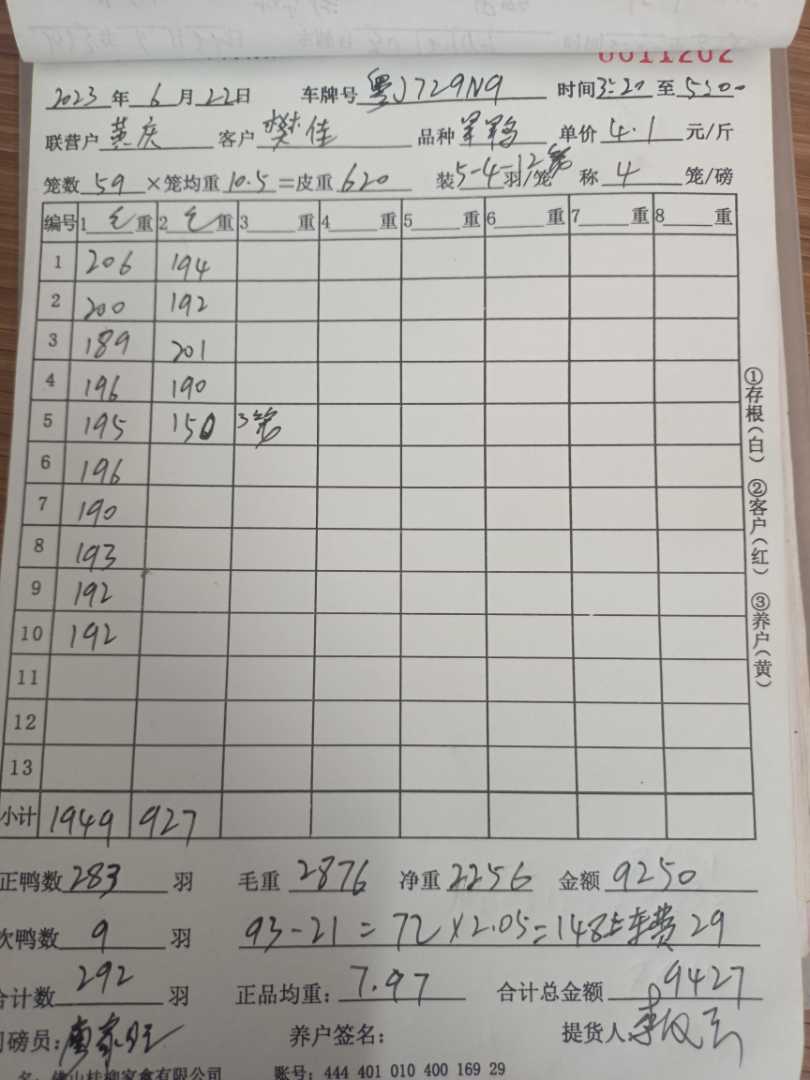 0011202
2023 年 6 月 22 日 车牌号 粤J729N9 时间 3:20 至 5:00
联营户 黄庆 客户 樊佳 品种 单价 4.1 元/斤
笼数 59 ×笼均重 10.5 =皮重 620 装 5-4-12笼 羽/笼 称 4 笼/磅
编号 1 毛 重 2 毛 重 3 重 4 重 5 重 6 重 7 重 8 重
1 206 194
2 200 192
3 189 201
4 196 190
5 195 150 3笼
6 196
7 190
8 193
9 192
10 192
11
12
13
小计 1949 927
①存根(白) ②客户(红) ③养户(黄)
正鸭数 283 羽 毛重 2876 净重 2256 金额 9250
次鸭数 9 羽 93-21=72×2.05=148 车费 29
合计数 292 羽 正品均重: 7.97 合计总金额 9427
司磅员: 养户签名: 提货人
名: 佛山桂柳家禽有限公司 账号: 444 401 010 400 169 29